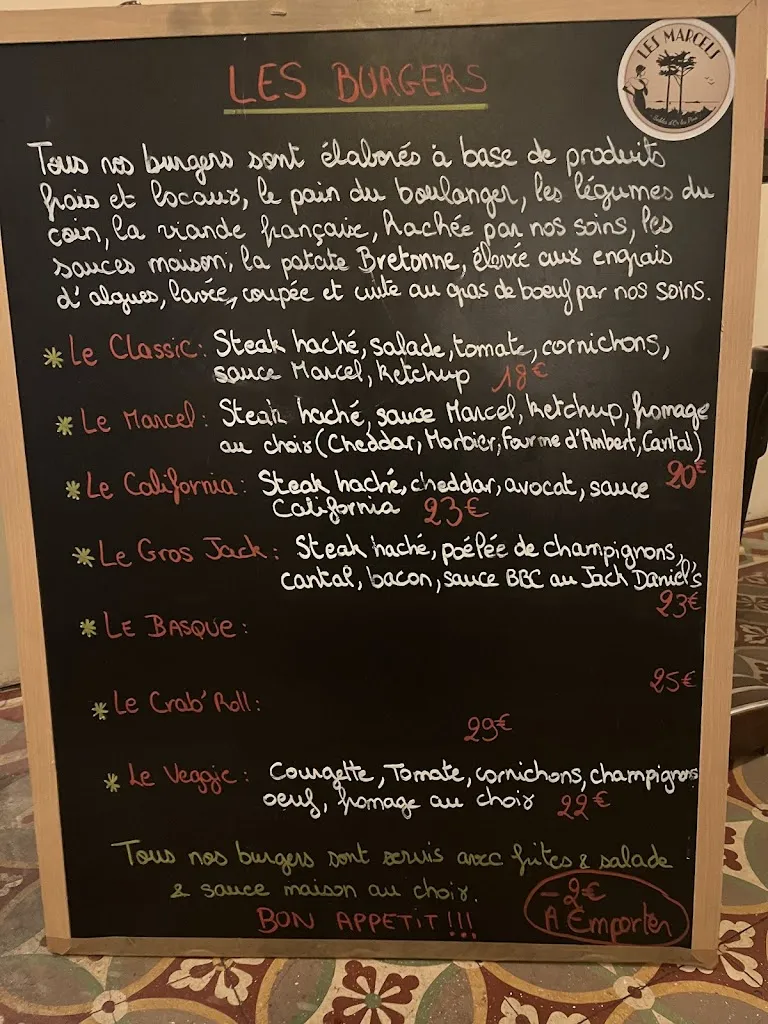 LES MARCELS
Sables d'Or les Pins
LES BURGERS
Tous nos burgers sont élaborés à base de produits
frais et locaux, le pain du boulanger, les légumes du
coin, la viande française, hachée par nos soins, les
sauces maison, la patate Bretonne, élevée aux engrais
d'algues, lavée, coupée et cuite au gras de boeuf par nos soins.
* Le Classic: Steak haché, salade, tomate, cornichons,
sauce Marcel, Ketchup 18€
* Le Marcel: Steak haché, sauce Marcel, Ketchup, fromage
au choix (Cheddar, Morbier, Fourme d'Ambert, Cantal)
20€
* Le California: Steak haché, cheddar, avocat, sauce
California 23€
* Le Gros Jack: Steak haché, poêlée de champignons,
cantal, bacon, sauce BBC au Jack Daniel's
23€
* LE BASQUE:
25€
* Le Crab'Roll:
29€
* Le Veggie: Courgette, Tomate, cornichons, champignons
oeuf, fromage au choix 22€
Tous nos burgers sont servis avec frites & salade
& sauce maison au choix.
BON APPETIT!!!
-2€
A Emporter